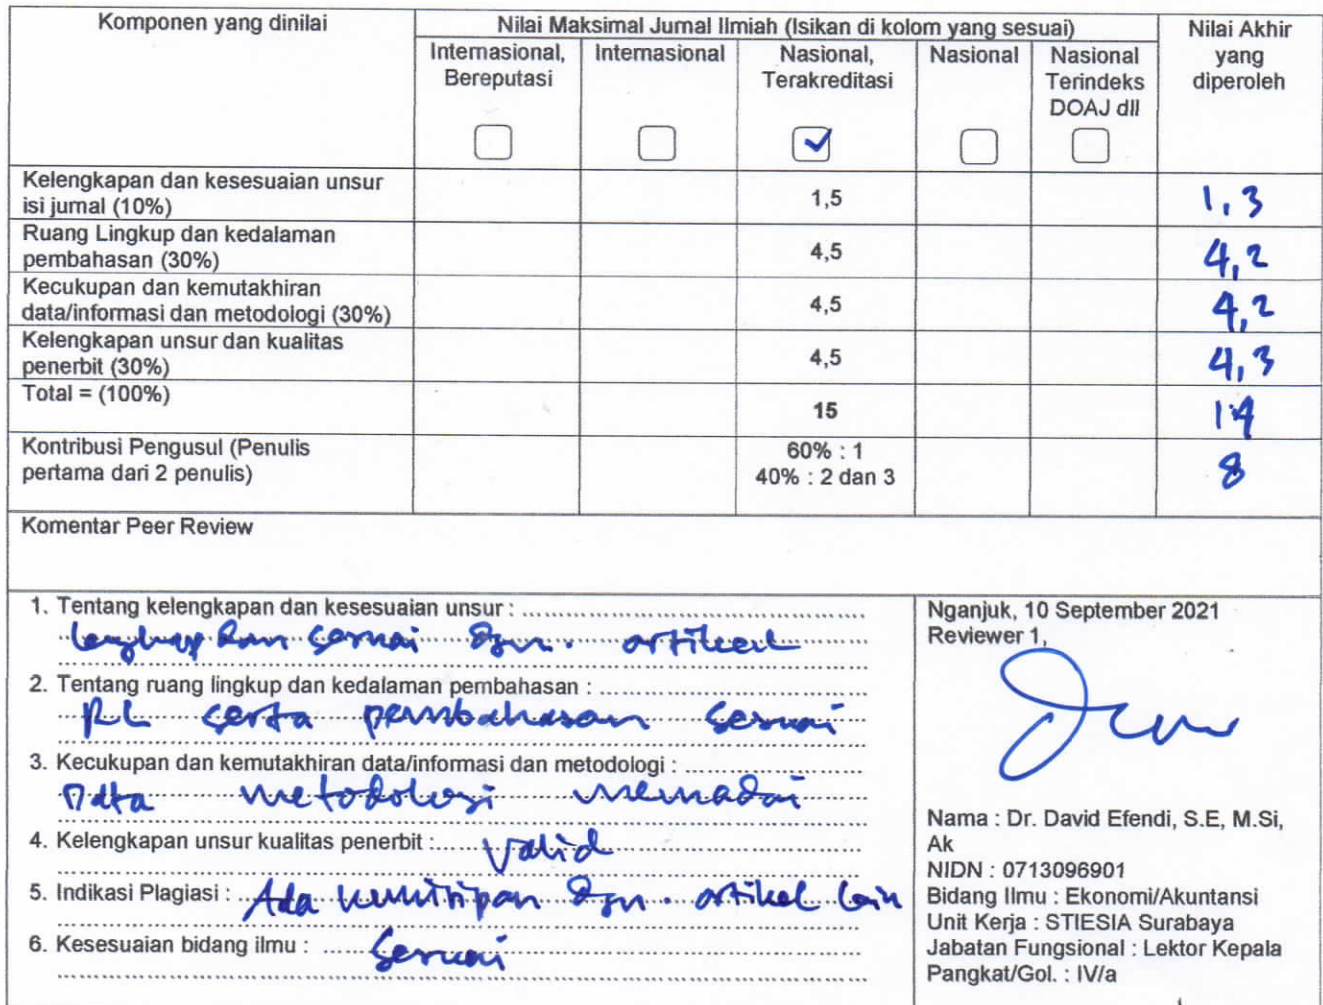 Komponen yang dinilai
Nilai Maksimal Jurnal Ilmiah (Isikan di kolom yang sesuai)
Nilai Akhir
yang
diperoleh
Internasional,
Bereputasi
Internasional
Nasional,
Terakreditasi
Nasional
Nasional
Terindeks
DOAJ dll
Kelengkapan dan kesesuaian unsur
isi jurnal (10%)
1,5
1,3
Ruang Lingkup dan kedalaman
pembahasan (30%)
4,5
4,2
Kecukupan dan kemutakhiran
data/informasi dan metodologi (30%)
4,5
4,2
Kelengkapan unsur dan kualitas
penerbit (30%)
4,5
4,3
Total = (100%)
15
14
Kontribusi Pengusul (Penulis
pertama dari 2 penulis)
60% : 1
40% : 2 dan 3
8
Komentar Peer Review
1. Tentang kelengkapan dan kesesuaian unsur :
lengkap dan sesuai dgn. artikel
2. Tentang ruang lingkup dan kedalaman pembahasan :
RL serta pembahasan sesuai
3. Kecukupan dan kemutakhiran data/informasi dan metodologi :
Data metodologi memadai
4. Kelengkapan unsur kualitas penerbit : Valid
5. Indikasi Plagiasi : Ada kemiripan dgn. artikel lain
6. Kesesuaian bidang ilmu : Sesuai
Nganjuk, 10 September 2021
Reviewer 1,
Nama : Dr. David Efendi, S.E, M.Si,
Ak
NIDN : 0713096901
Bidang Ilmu : Ekonomi/Akuntansi
Unit Kerja : STIESIA Surabaya
Jabatan Fungsional : Lektor Kepala
Pangkat/Gol. : IV/a